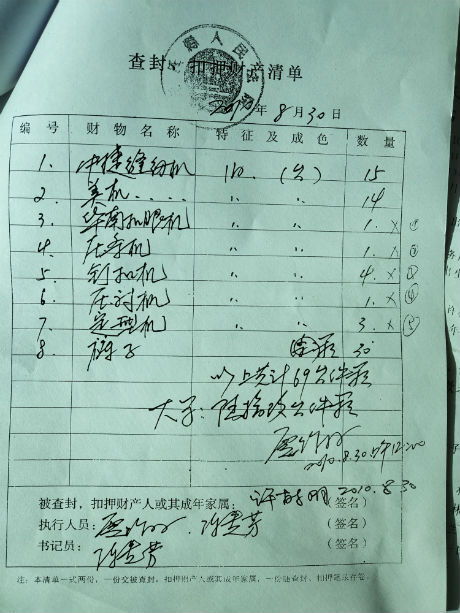 查封、扣押财产清单
2010年8月30日
编号 财物名称 特征及成色 数量
1. 中捷缝纫机 旧.(台) 15
2. 美机..... 〃 〃 14
3. 华南扣眼机 〃 〃 1. × ①
4. 压平机 〃 〃 1. × ②
5 钉扣机 〃 〃 4. × ③
6. 压衬机 〃 〃 1. × ④
7. 定型机 〃 〃 3. × ⑤
8. 裤子 30
以上共计69台件
大写:陆拾玖台件
2010.8.30
被查封,扣押财产人或其成年家属: 2010.8.30 (签名)
执行人员: (签名)
书记员: (签名)
注:本清单一式两份,一份交被查封、扣押财产人或其成年家属,一份随查封、扣押笔录存卷。